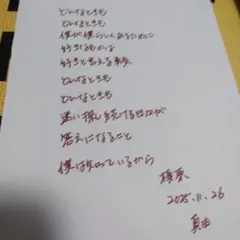 どんなときも
どんなときも
僕が僕らしくあるために
好きなものは
好きと言える気持
どんなときも
どんなときも
迷い探し続ける日々が
答えになること
僕は知っているから
槇原
2025.11.26
真由